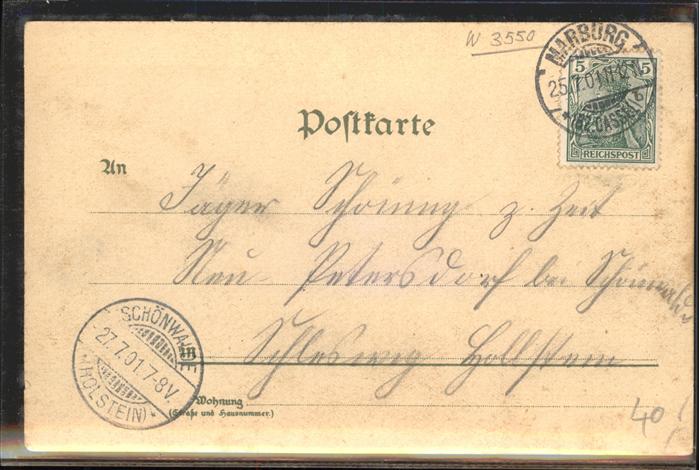 W 3550
MARBURG
25.7.01.11-12
(BZ. CASSEL)
5 5
REICHSPOST
Postkarte
An
Jäger Schöning z. Zeit
Neu-Petersdorf bei Schönwalde
in Schleswig Hollstein
SCHÖNWALDE
27.7.01.7-8V.
(HOLSTEIN)
Wohnung
(Straße und Hausnummer.)
40